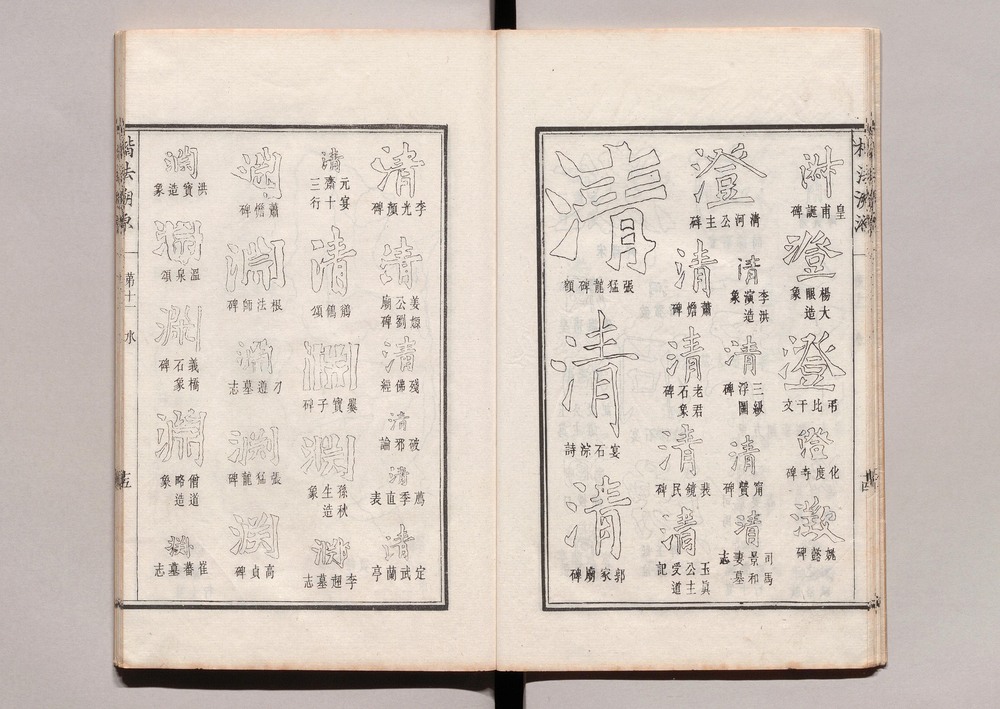 皇甫誕碑
澄
楊大眼造象
澄
弔比干文
澄
化度寺碑
澂
魏懿碑
澄
清河公主碑
清
李洪演造象
清
三級浮圖碑
清
甯贊碑
清
司馬景和妻墓志
清
蕭憺碑
清
老君石象碑
清
裴鏡民碑
清
玉眞公主受道記
清
張猛龍碑額
清
宴石淙詩
清
郭家廟碑
清
李光顏碑
清
姜嫄公劉廟碑
清
殘佛經
清
破邪論
清
薦季直表
清
定武蘭亭
清
元宴齋三十行
清
鶺鴒頌
淵
爨寶子碑
淵
孫秋生造象
淵
李超墓志
淵
蕭憺碑
淵
根法師碑
淵
刁遵墓志
淵
張猛龍碑
淵
高貞碑
淵
洪寶造象
淵
溫泉頌
淵
義橋石象碑
淵
僧道略造象
淵
崔蕃墓志
楷法溯原 第十一 水